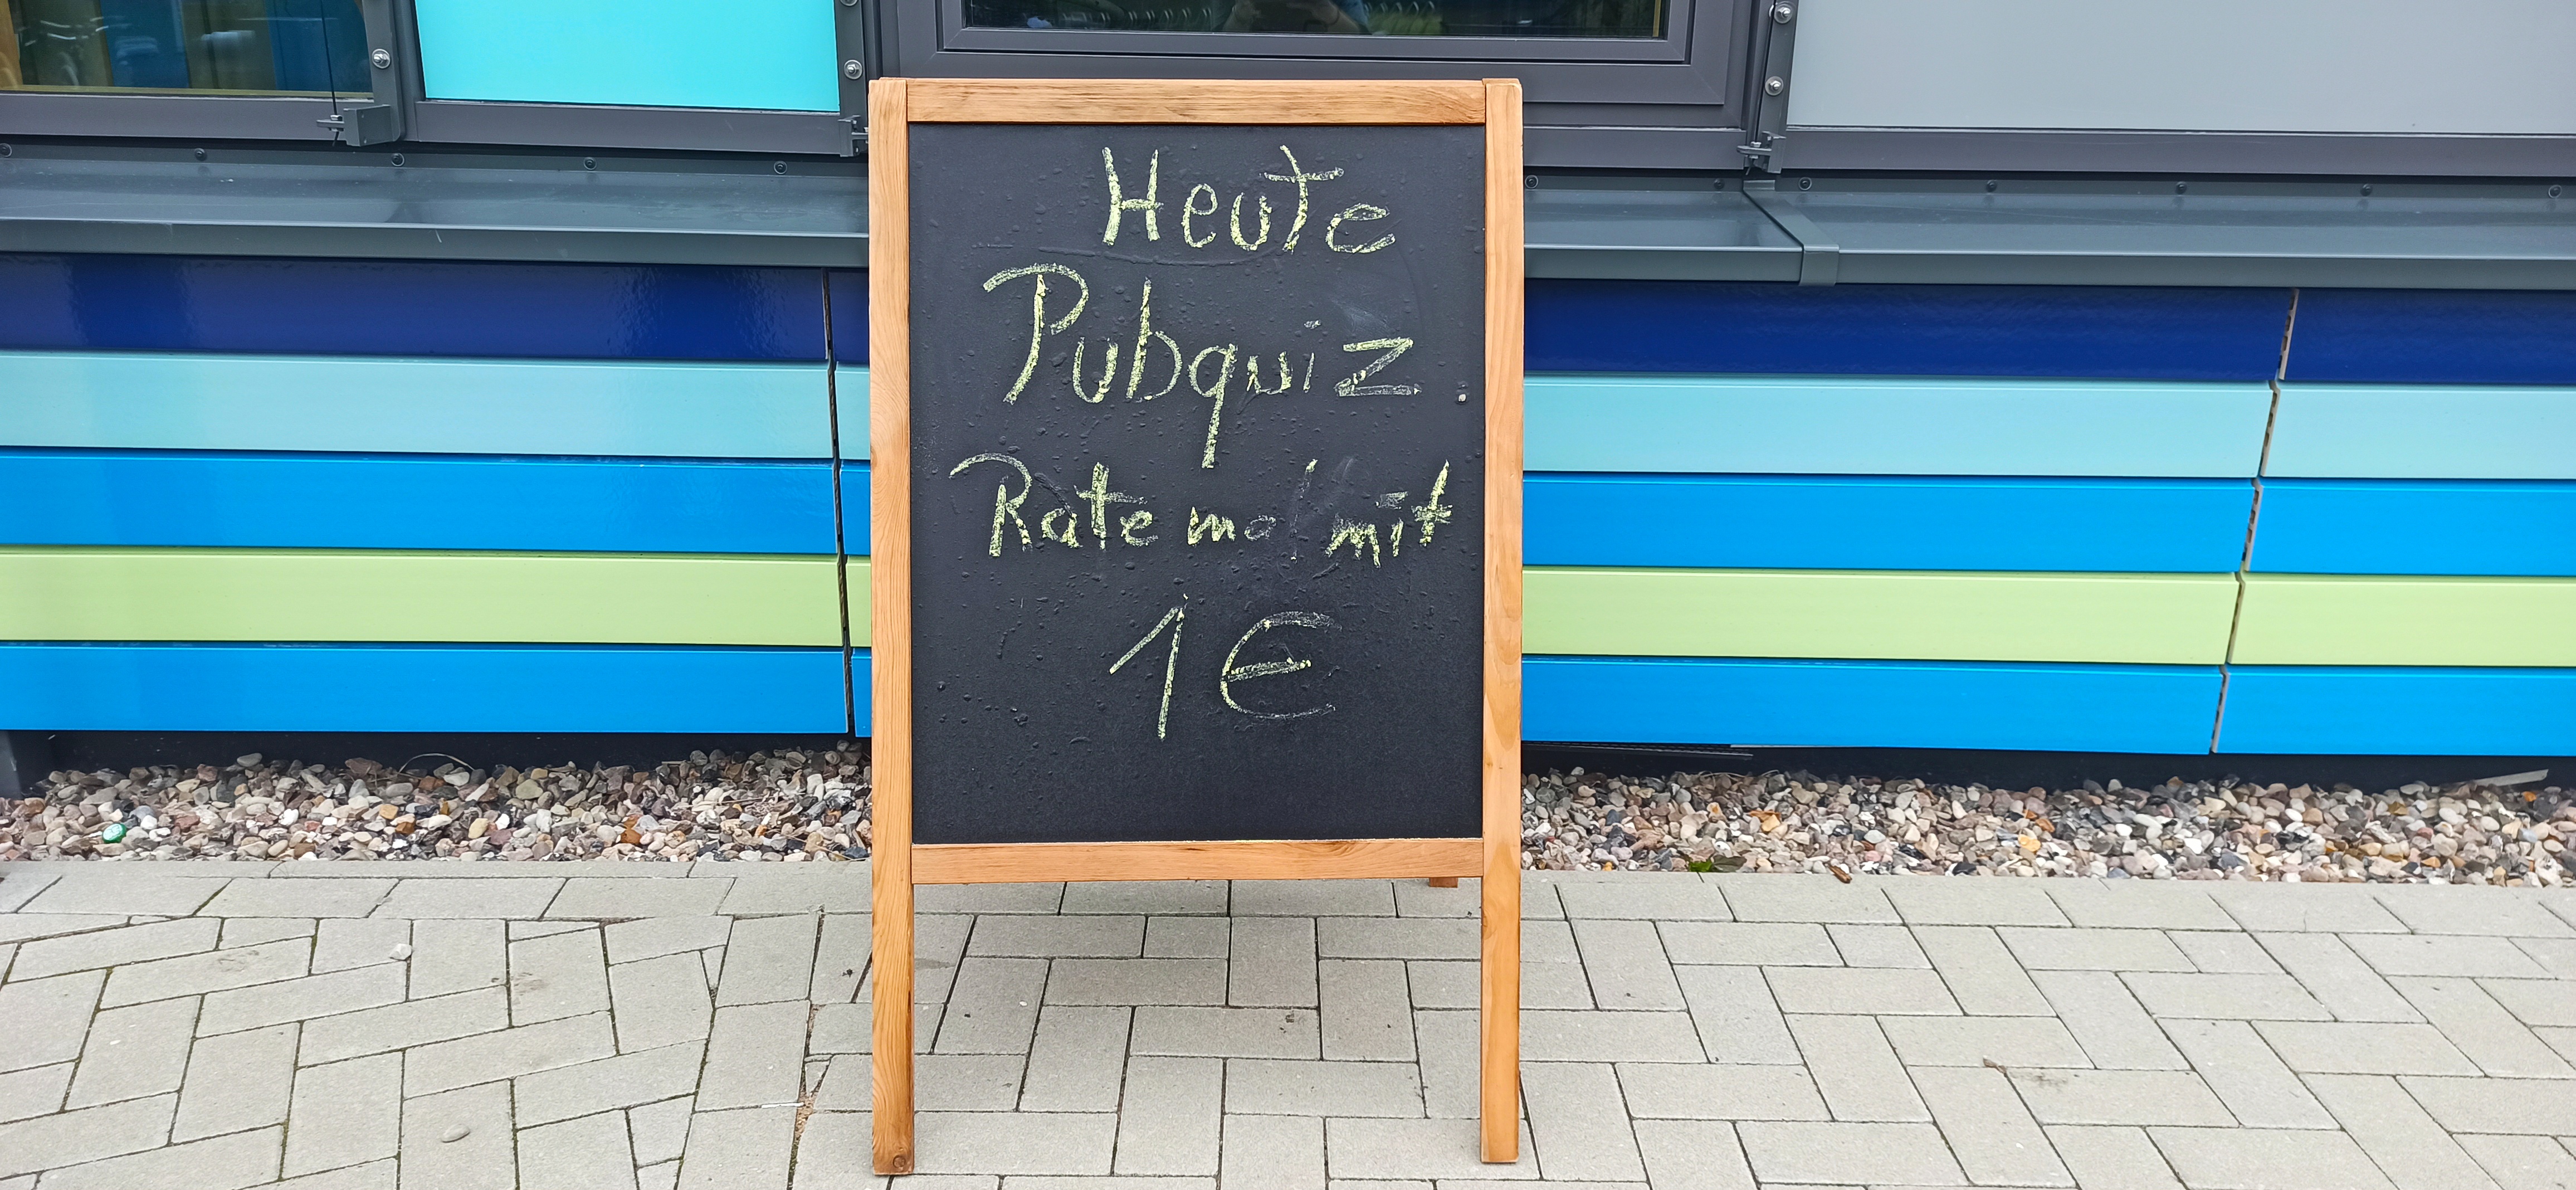 Heute
Pubquiz
Rate mal mit
1 €